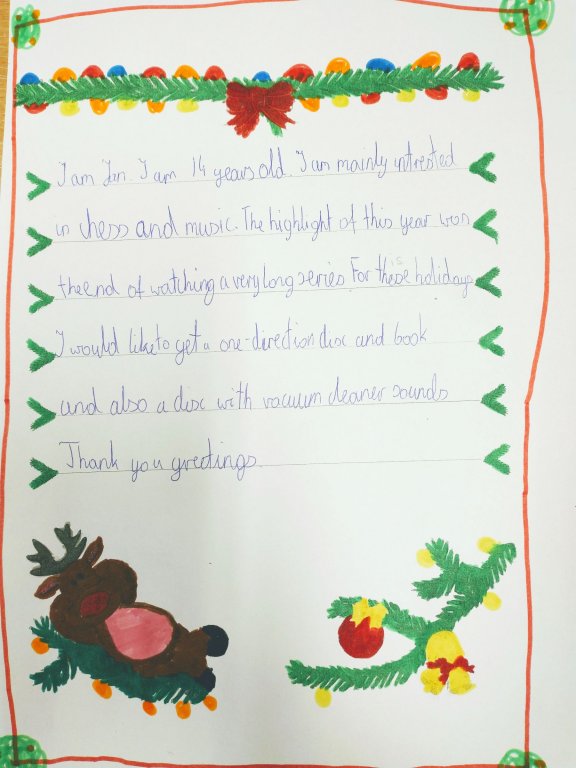 I am Jan. I am 14 years old. I am mainly intrested
in chess and music. The highlight of this year was
the end of watching a very long series For these holidays
I would like to get a one-direction disc and book
and also a disc with vacuum cleaner sounds
Thank you greetings